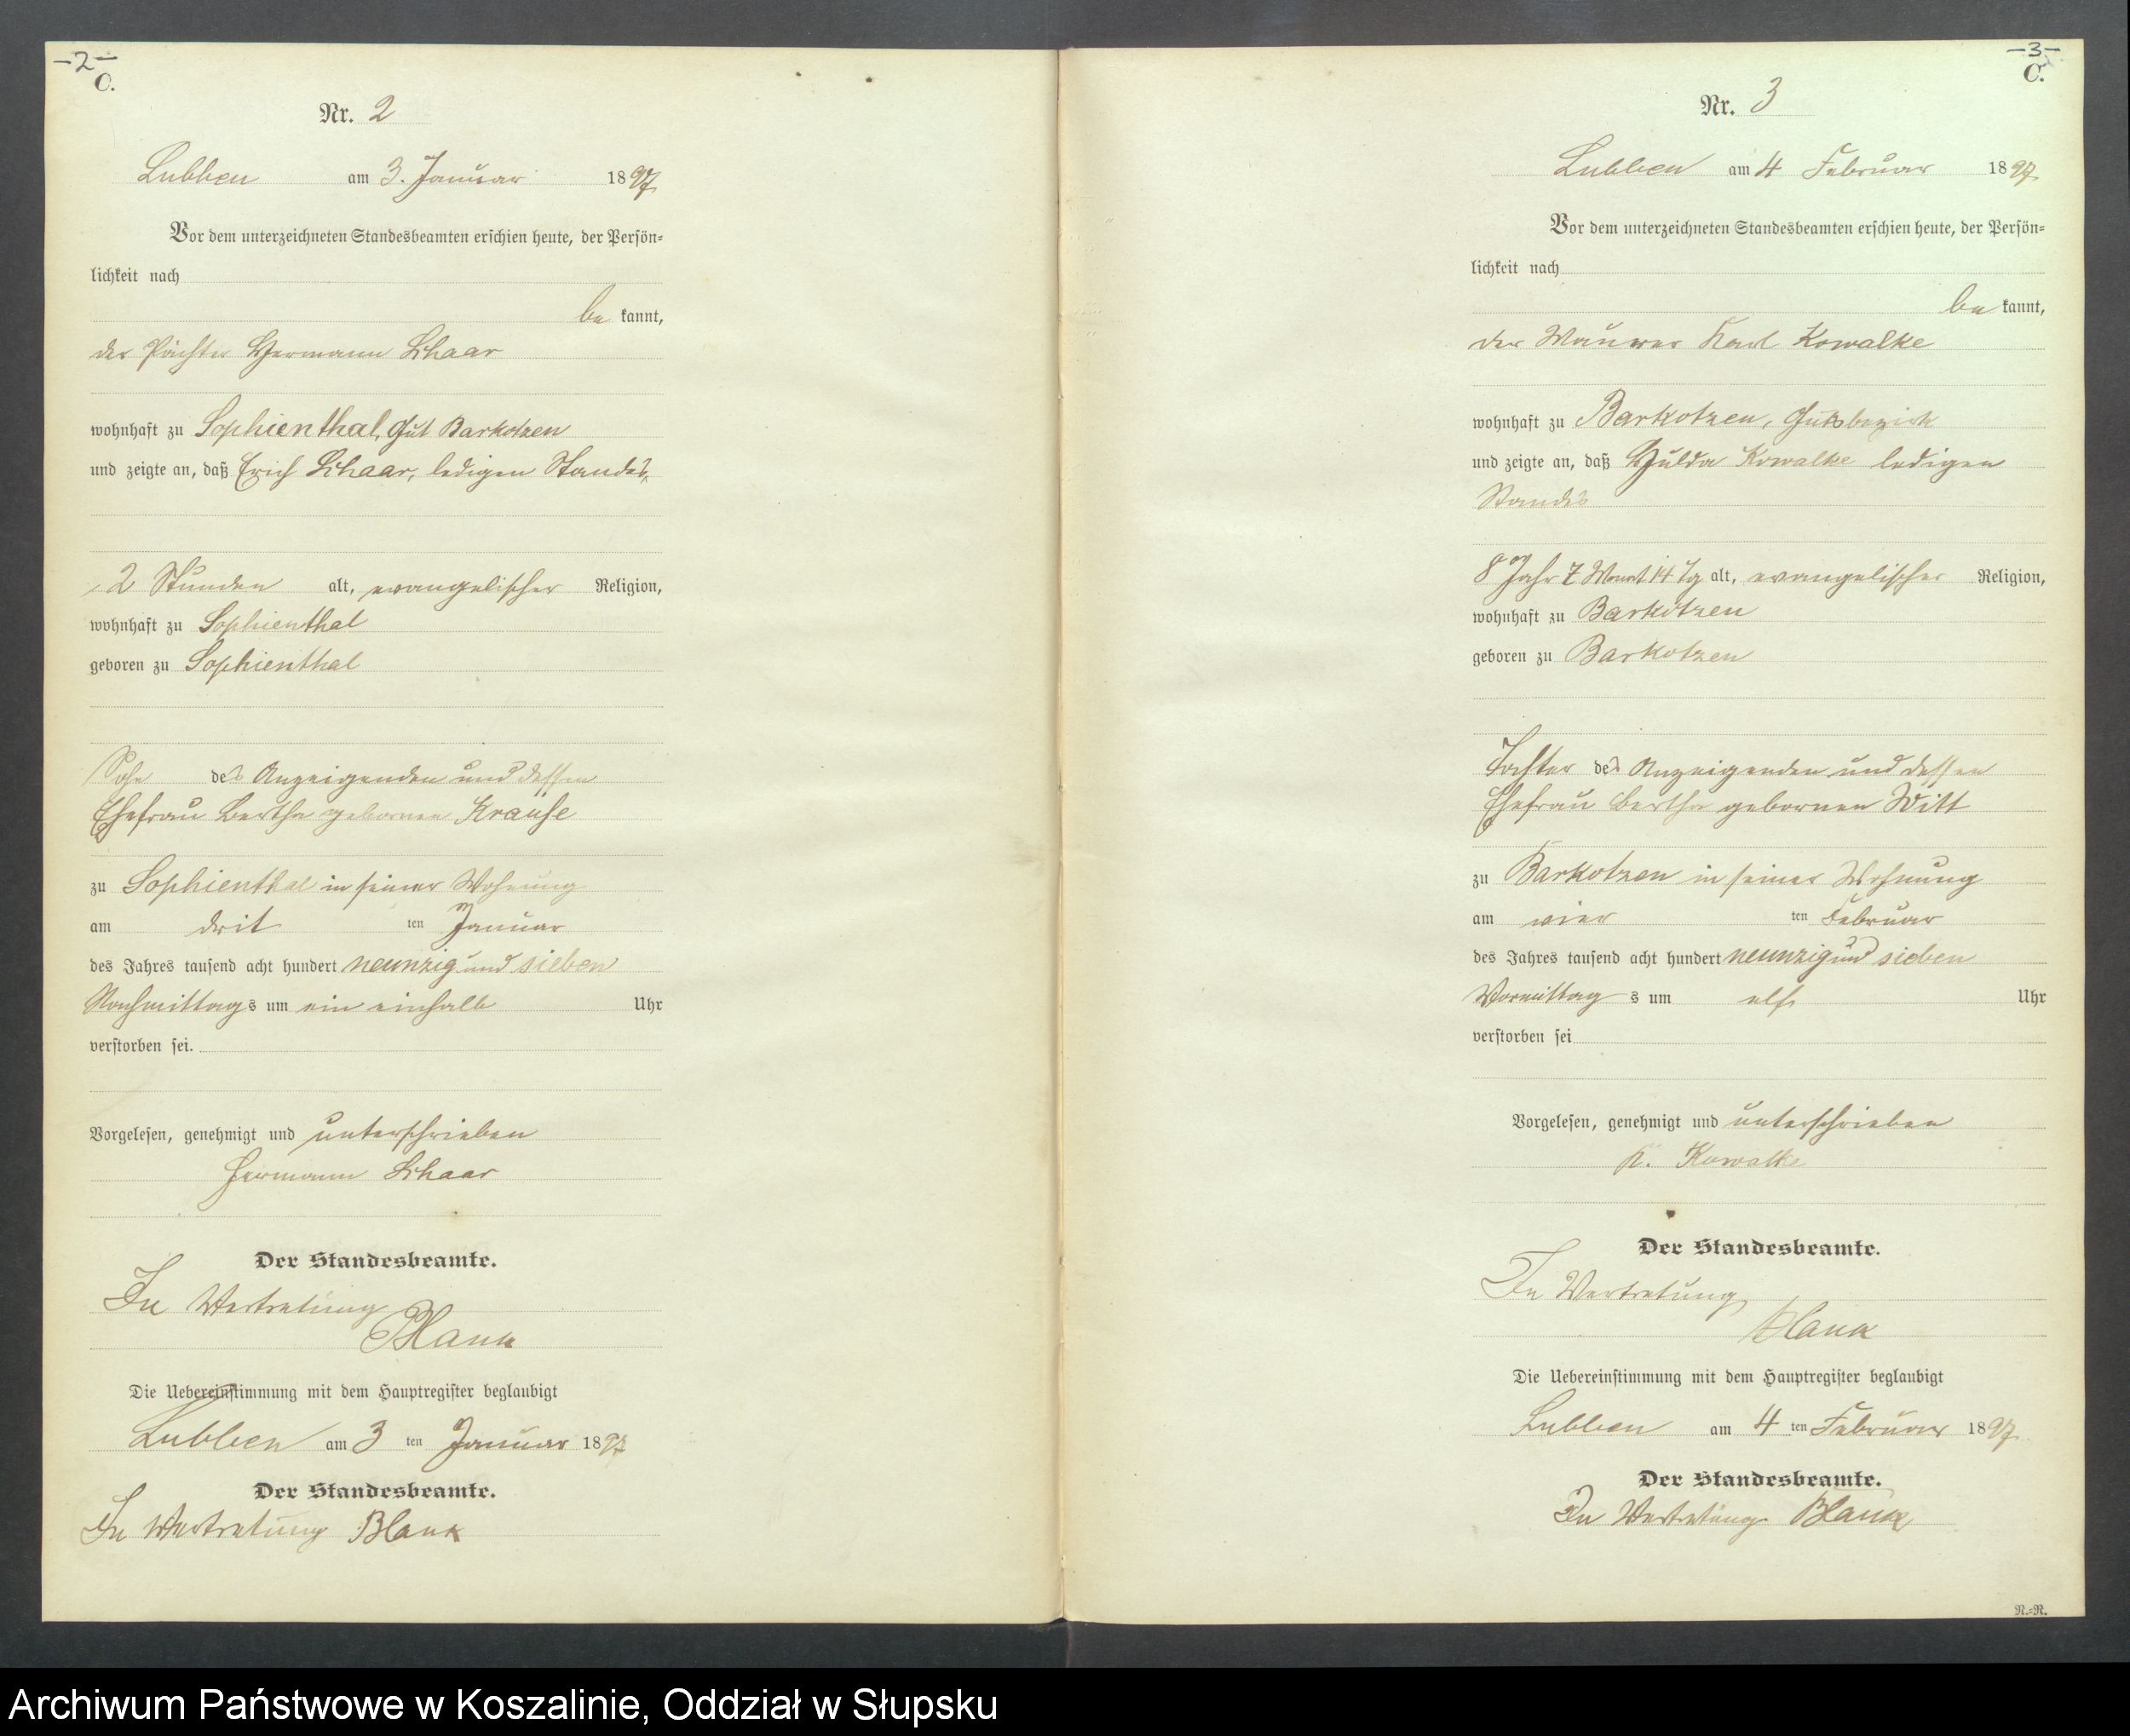 -2-
C.
Nr. 2
Lubben am 3. Januar 1897
Vor dem unterzeichneten Standesbeamten erschien heute, der Persön-
lichkeit nach
be kannt,
der Pächter Hermann Schaar
wohnhaft zu Sophienthal, Gut Barkotzen
und zeigte an, daß Erich Schaar, ledigen Standes,
2 Stunden alt, evangelischer Religion,
wohnhaft zu Sophienthal
geboren zu Sophienthal
Sohn des Anzeigenden und dessen
Ehefrau Bertha gebornen Krause
zu Sophienthal in seiner Wohnung
am drit ten Januar
des Jahres tausend acht hundert neunzig und sieben
Nachmittags um ein einhalb Uhr
verstorben sei.
Vorgelesen, genehmigt und unterschrieben
Hermann Schaar
Der Standesbeamte.
In Vertretung
Blank
Die Uebereinstimmung mit dem Hauptregister beglaubigt
Lubben am 3 ten Januar 1897
Der Standesbeamte.
In Vertretung Blank
-3-
C.
Nr. 3
Lubben am 4 Februar 1897
Vor dem unterzeichneten Standesbeamten erschien heute, der Persön-
lichkeit nach
be kannt,
der Maurer Karl Kowalke
wohnhaft zu Barkotzen, Gutsbezirk
und zeigte an, daß Hulda Kowalke ledigen
Standes
8 Jahr 7 Monat 14 Tg alt, evangelischer Religion,
wohnhaft zu Barkotzen
geboren zu Barkotzen
Tochter des Anzeigenden und dessen
Ehefrau Bertha gebornen Witt
zu Barkotzen in seiner Wohnung
am vier ten Februar
des Jahres tausend acht hundert neunzig und sieben
Vormittag s um elf Uhr
verstorben sei
Vorgelesen, genehmigt und unterschrieben
K. Kowalke
Der Standesbeamte.
In Vertretung
Blank
Die Uebereinstimmung mit dem Hauptregister beglaubigt
Lubben am 4 ten Februar 1897
Der Standesbeamte.
In Vertretung Blank
R.=R.
Archiwum Państwowe w Koszalinie, Oddział w Słupsku